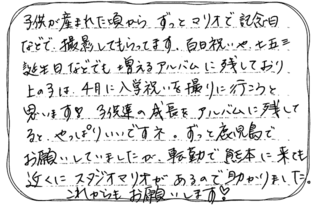 子供が産まれた頃から ずっとマリオで記念日
などで、撮影してもらってます。百日祝いや、七五三
誕生日などでも 増えるアルバムに残しており
上の子は、4月に入学祝いを撮りに行こうと
思います♡ 子供達の成長をアルバムに残して
ると、やっぱりいいですネ。ずっと鹿児島で
お願いしていましたが、転勤で熊本に来ても
近くにスタジオマリオがあるので助かりました。
これからもお願いします♡